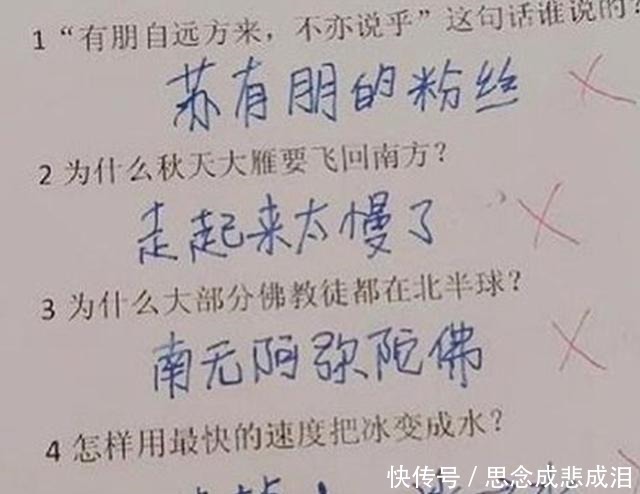 1 “有朋自远方来，不亦说乎”这句话谁说的?
苏有朋的粉丝
2 为什么秋天大雁要飞回南方?
走起来太慢了
3 为什么大部分佛教徒都在北半球?
南无阿弥陀佛
4 怎样用最快的速度把冰变成水?
快传号／思念成悲成泪